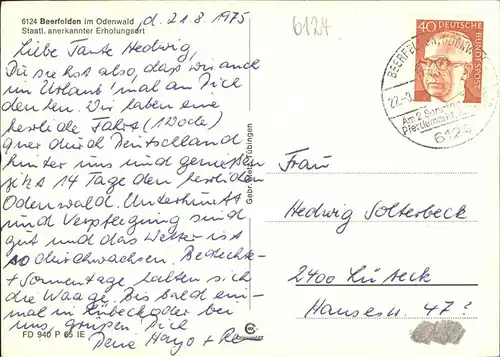 6124 Beerfelden im Odenwald
Staatl. anerkannter Erholungsort
d. 21.8.1975
6124
Liebe Tante Hedwig,
Du siehst also, daß wir auch
im Urlaub 'mal an Dich
denken. Wir haben eine
herrliche Fahrt (1 Woche)
quer durch Deutschland
hinter uns und genießen
jetzt 14 Tage den herrlichen
Odenwald. Unterkunft
und Verpflegung sind
gut und das Wetter ist
so durchwachsen. Bedeckte-
+ Sonnentage halten sich
die Waage. Bis bald ein-
mal in Lübeck oder bei
uns, grüßen Dich
Deine Hajo +
FD 940 P 65 IE
Gebr. Metz, Tübingen
40 DEUTSCHE
BUNDESPOST
BEERFELDEN, ODENW
22.-8.
Am 2. Sonntag
Pferdemarkt
6124
Frau
Hedwig Solterbeck
2400 Lübeck
Hansestr. 47?